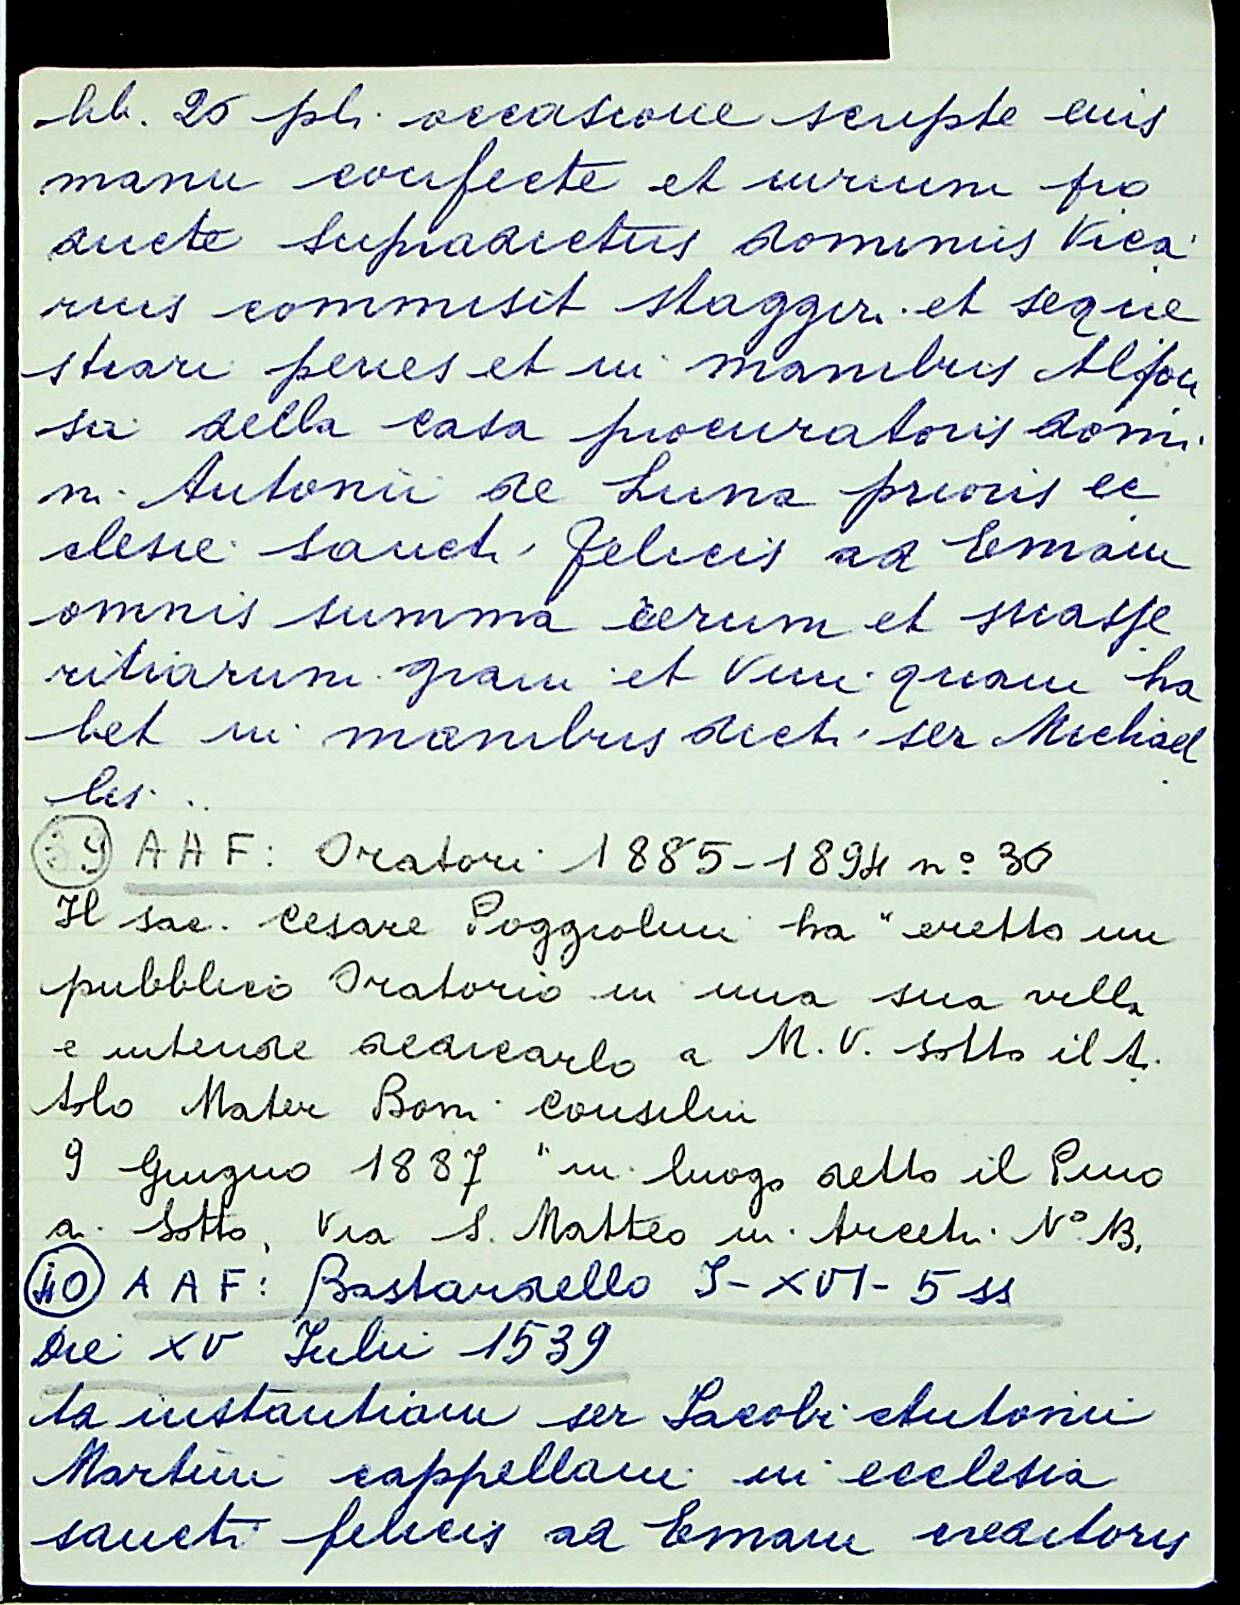 lib. 26 pli. occasione scripte eius
manu confecte et iurium pro
ducte supradictus dominus Vica
rius commisit staggiri et seque
strari penes et in manibus Alfon
si della Casa procuratoris domi
ni Antonii de Luna prioris ec
clesie sancti Felicis ad Emam
omnis summa rerum et masse
ritiarum grani et vini quam ha
bet in manibus dicti ser Michael
lis..
39 AAF: Oratori 1885-1894 n° 30
Il sac. Cesare Poggiolini ha "eretto un
pubblico Oratorio in una sua villa
e intende dedicarlo a M.V. sotto il ti
tolo Mater Boni Consilii
9 Giugno 1887 "in luogo detto il Pino
a Sotto, Via S. Matteo in Arcetri N° 13.
40 AAF: Bastardello I-XVI-5 ss
Die XV Iulii 1539
Ad instantiam ser Iacobi Antonii
Martini cappellani in ecclesia
sancti felicis ad Emam creditoris